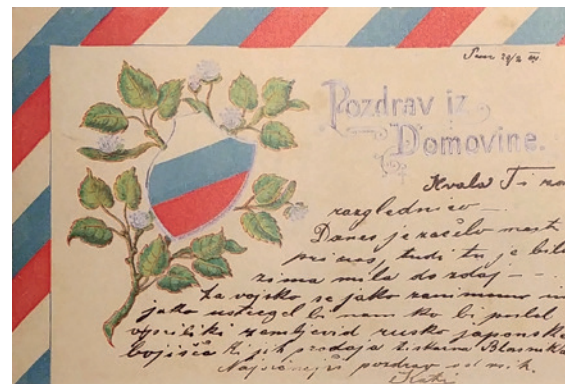 29/2
Pozdrav iz
Domovine.
Hvala Ti za
razglednico —
Danes je začelo mesti
pri nas, tudi tu je bila
zima mila do zdaj — -
za vojsko se jako zanimamo in
jako ustregel bi nam ko bi poslal
zemljevid rusko japonska
bojišča ki jih prodaja tiskarna Blasnika
pozdrav od nik.